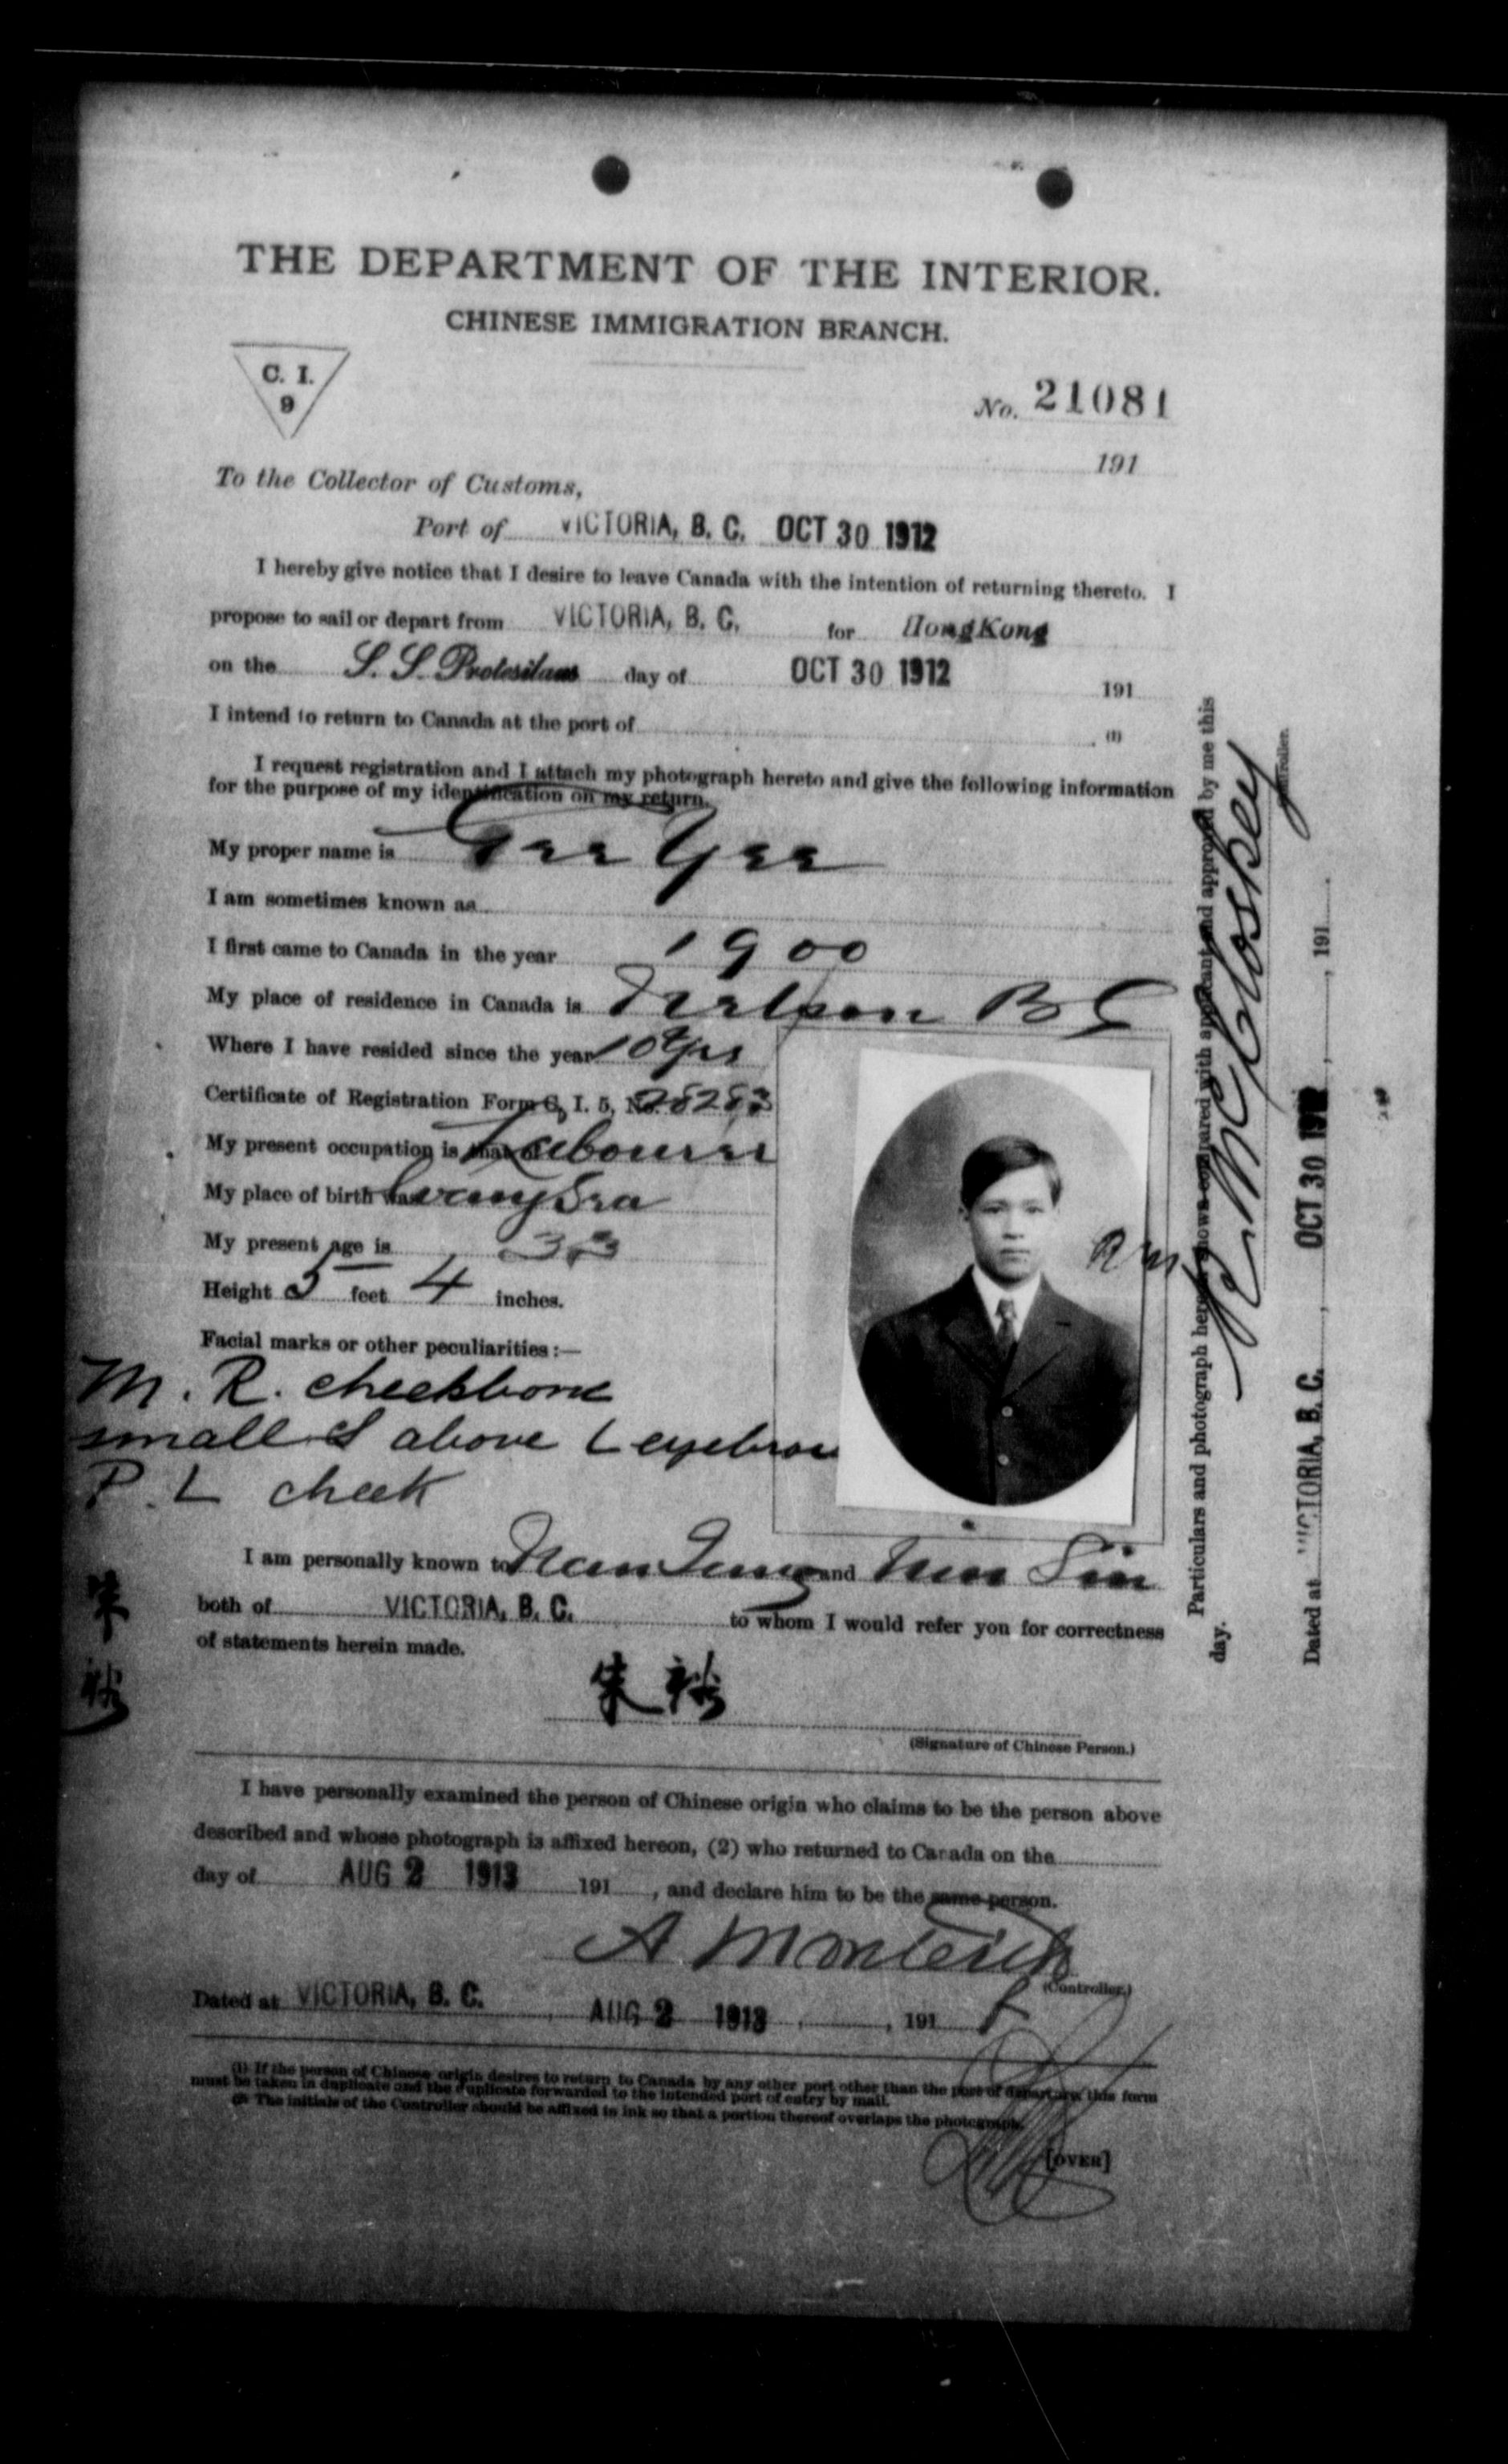 THE DEPARTMENT OF THE INTERIOR.
CHINESE IMMIGRATION BRANCH.
C. I.
9
No. 21081
191
To the Collector of Customs,
Port of VICTORIA, B. C. OCT 30 1912
I hereby give notice that I desire to leave Canada with the intention of returning thereto. I
propose to sail or depart from VICTORIA, B. C. for HongKong
on the S. S. Protesilaus day of OCT 30 1912 191
I intend to return to Canada at the port of . (1)
I request registration and I attach my photograph hereto and give the following information
for the purpose of my identification on my return.
My proper name is Gee Yee
I am sometimes known as
I first came to Canada in the year 1900
My place of residence in Canada is Nelson B C
Where I have resided since the year 10 yrs
Certificate of Registration Form C, I. 5, No. 28283
My present occupation is that Labourer
My place of birth was
My present age is 33
Height 5 feet 4 inches.
Facial marks or other peculiarities :—
M. R. cheekbone
small S above L eyebrow
P. L cheek
R M
I am personally known to and
both of VICTORIA, B. C. to whom I would refer you for correctness
of statements herein made.
朱裕
朱裕
(Signature of Chinese Person.)
I have personally examined the person of Chinese origin who claims to be the person above
described and whose photograph is affixed hereon, (2) who returned to Canada on the
day of AUG 2 1913 191 , and declare him to be the same person.
A Monteith
(Controller.)
Dated at VICTORIA, B. C. , AUG 2 1913 , 191
(1) If the person of Chinese origin desires to return to Canada by any other port other than the port of departure, this form
must be taken in duplicate and the duplicate forwarded to the intended port of entry by mail.
(2) The initials of the Controller should be affixed in ink so that a portion thereof overlaps the photograph.
[OVER]
Particulars and photograph hereon shown compared with applicant and approved by me this
day.
R McCloskey
Controller.
Dated at VICTORIA, B. C. , OCT 30 1912 , 191